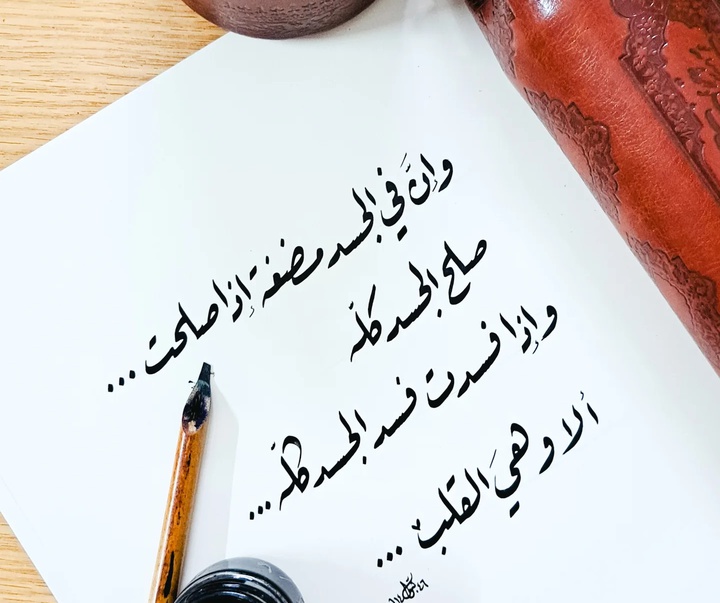 وإنَّ في الجسد مضغة إذا صلحت ...
صلح الجسد كلّه
وإذا فسدت فسد الجسد كلّه ...
ألا وهيَ القلب ...